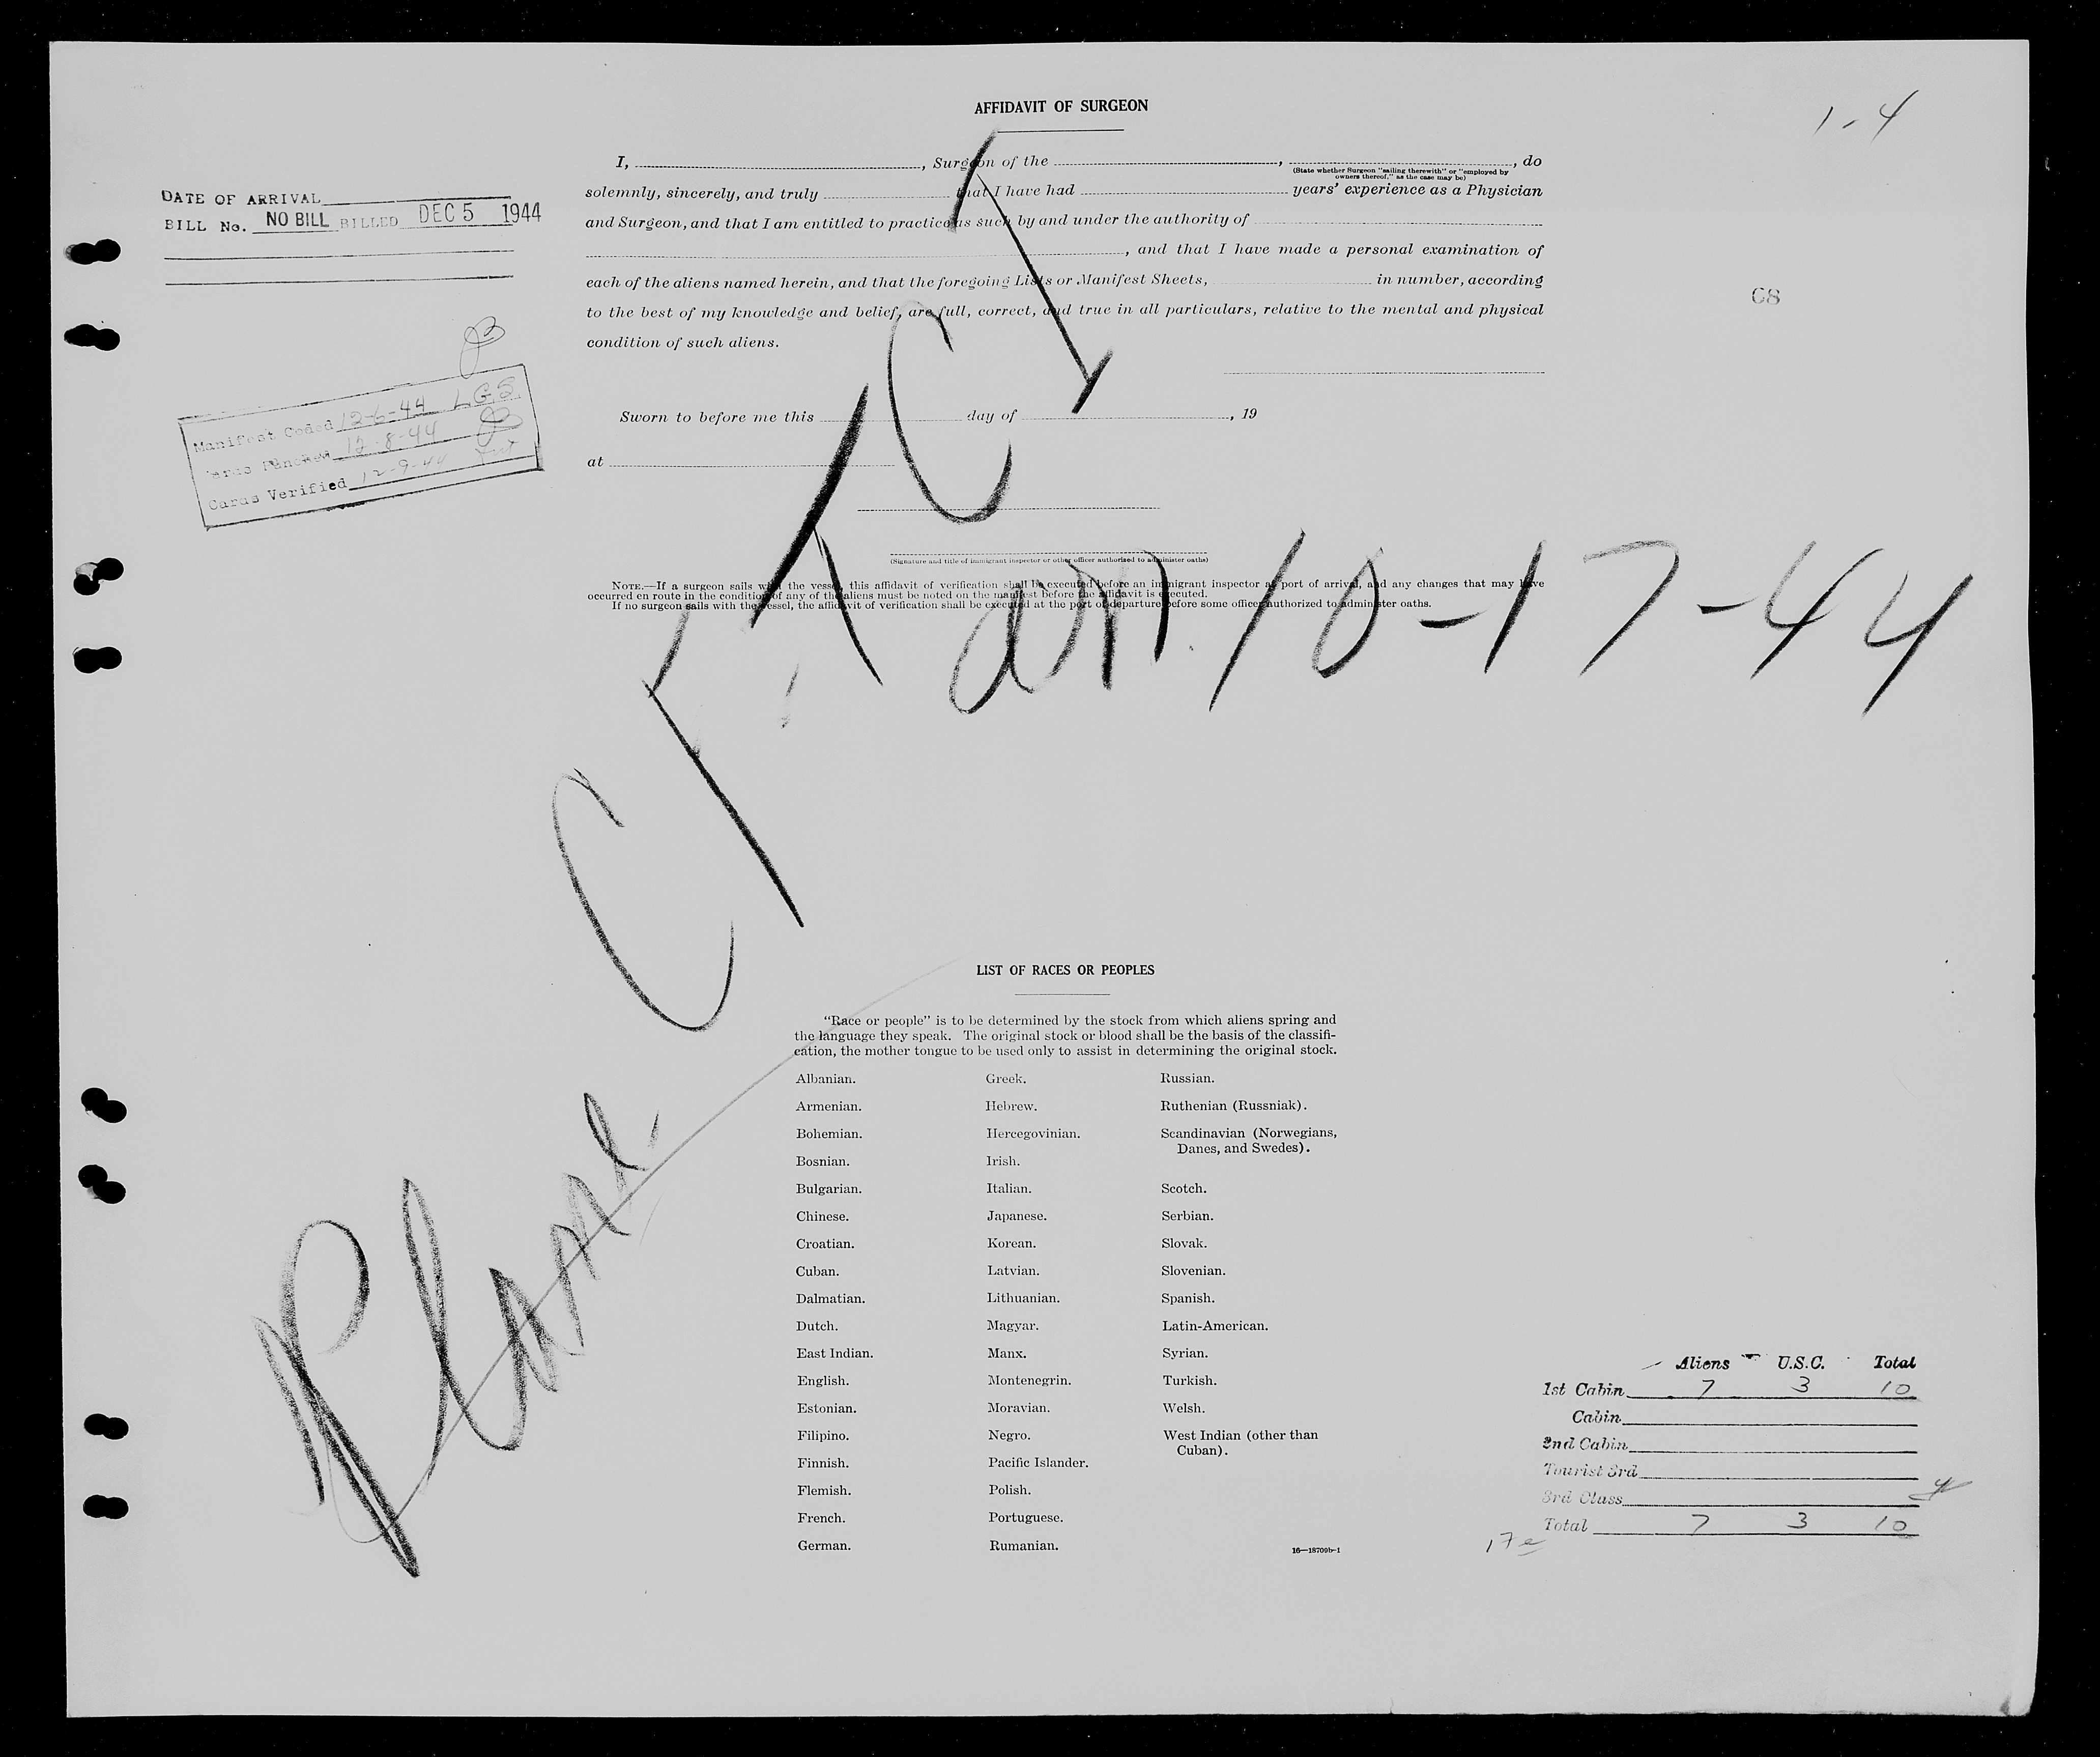 AFFIDAVIT OF SURGEON
1-4
I, , Surgeon of the , , do
(State whether Surgeon "sailing therewith" or "employed by
owners thereof," as the case may be)
solemnly, sincerely, and truly that I have had years' experience as a Physician
and Surgeon, and that I am entitled to practice as such by and under the authority of
, and that I have made a personal examination of
each of the aliens named herein, and that the foregoing Lists or Manifest Sheets, in number, according
to the best of my knowledge and belief, are full, correct, and true in all particulars, relative to the mental and physical
condition of such aliens.
Sworn to before me this day of , 19
at
(Signature and title of immigrant inspector or other officer authorized to administer oaths)
NOTE.—If a surgeon sails with the vessel, this affidavit of verification shall be executed before an immigrant inspector at port of arrival, and any changes that may have
occurred en route in the condition of any of the aliens must be noted on the manifest before the affidavit is executed.
If no surgeon sails with the vessel, the affidavit of verification shall be executed at the port of departure before some officer authorized to administer oaths.
DATE OF ARRIVAL
BILL No. NO BILL BILLED DEC 5 1944
Manifest Coded 12-6-44 LGS
Cards Punched 12-8-44
Cards Verified 12-9-44
C8
Plane
arr. 10-17-44
LIST OF RACES OR PEOPLES
"Race or people" is to be determined by the stock from which aliens spring and
the language they speak. The original stock or blood shall be the basis of the classifi-
cation, the mother tongue to be used only to assist in determining the original stock.
Albanian.
Armenian.
Bohemian.
Bosnian.
Bulgarian.
Chinese.
Croatian.
Cuban.
Dalmatian.
Dutch.
East Indian.
English.
Estonian.
Filipino.
Finnish.
Flemish.
French.
German.
Greek.
Hebrew.
Hercegovinian.
Irish.
Italian.
Japanese.
Korean.
Latvian.
Lithuanian.
Magyar.
Manx.
Montenegrin.
Moravian.
Negro.
Pacific Islander.
Polish.
Portuguese.
Rumanian.
Russian.
Ruthenian (Russniak).
Scandinavian (Norwegians,
Danes, and Swedes).
Scotch.
Serbian.
Slovak.
Slovenian.
Spanish.
Latin-American.
Syrian.
Turkish.
Welsh.
West Indian (other than
Cuban).
16—18709b-1
Aliens U.S.C. Total
1st Cabin 7 3 10
Cabin
2nd Cabin
Tourist 3rd
3rd Class
Total 7 3 10